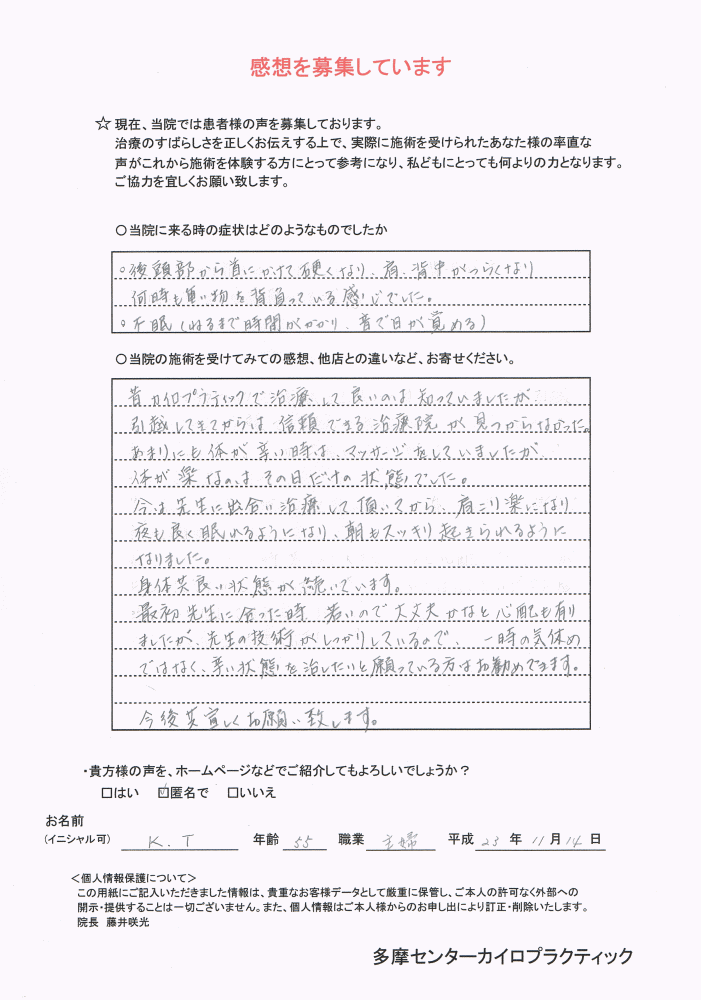 感想を募集しています
☆ 現在、当院では患者様の声を募集しております。
治療のすばらしさを正しくお伝えする上で、実際に施術を受けられたあなた様の率直な
声がこれから施術を体験する方にとって参考になり、私どもにとっても何よりの力となります。
ご協力を宜しくお願い致します。
〇当院に来る時の症状はどのようなものでしたか
。後頭部から首にかけて硬くなり、肩、背中がつらくなり
何時も重い物を背負っている感じでした。
。不眠(ねるまで時間がかかり、音で目が覚める)
〇当院の施術を受けてみての感想、他店との違いなど、お寄せください。
昔カイロプラティックで治療して良いのは知っていましたが
引越してきてからは信頼できる治療院が見つからなかった。
あまりにも体が辛い時は、マッサージをしていましたが
体が楽なのはその日だけの状態でした。
今は先生に出合い治療して頂いてから、肩こり楽になり
夜も良く眠れるようになり、朝もスッキリ起きられるように
なりました。
身体共良い状態が続いています。
最初先生に合った時 若いので大丈夫かなと心配も有り
ましたが、先生の技術がしっかりしているので、一時の気休め
ではなく、辛い状態を治したいと願っている方はお勧めできます。
今後共宜しくお願い致します。
・貴方様の声を、ホームページなどでご紹介してもよろしいでしょうか？
□はい ☑匿名で □いいえ
お名前
(イニシャル可) K.T 年齢 55 職業 主婦 平成 23 年 11 月 14 日
＜個人情報保護について＞
この用紙にご記入いただきました情報は、貴重なお客様データとして厳重に保管し、ご本人の許可なく外部への
開示・提供することは一切ございません。また、個人情報はご本人様からのお申し出により訂正・削除いたします。
院長 藤井咲光
多摩センターカイロプラクティック